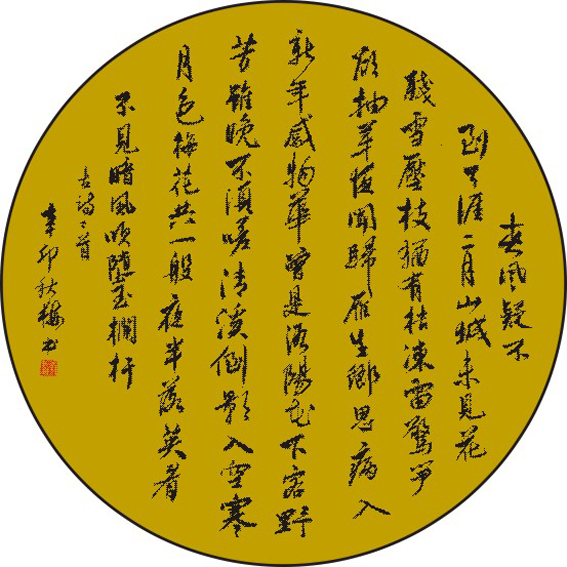 春風疑不
到天涯二月山城未見花
殘雪壓枝猶有桔凍雷驚笋
欲抽芽夜聞歸雁生鄉思病入
新年感物華曾是洛陽花下客野
芳雖晚不須嗟清溪倒影入空寒
月色梅花共一般夜半落英看
不見暗風吹墮玉欄杆
古詩二首
辛卯秋梅书